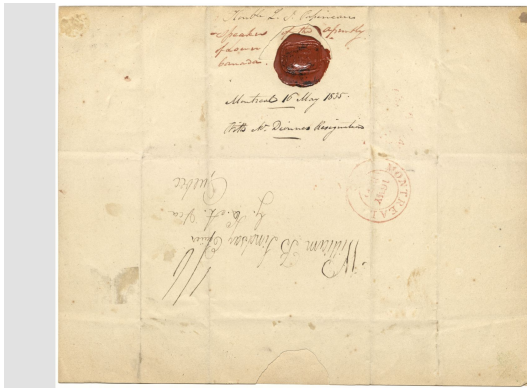 Honble L. J. Papineau
Speaker of the Assembly
of Lower
Canada.
Montreal 16 May 1835.
With Mr. Dionnes Resignation
MONTREAL
MY
William B Lindsay Esquire
&c. &c. &c.
Quebec